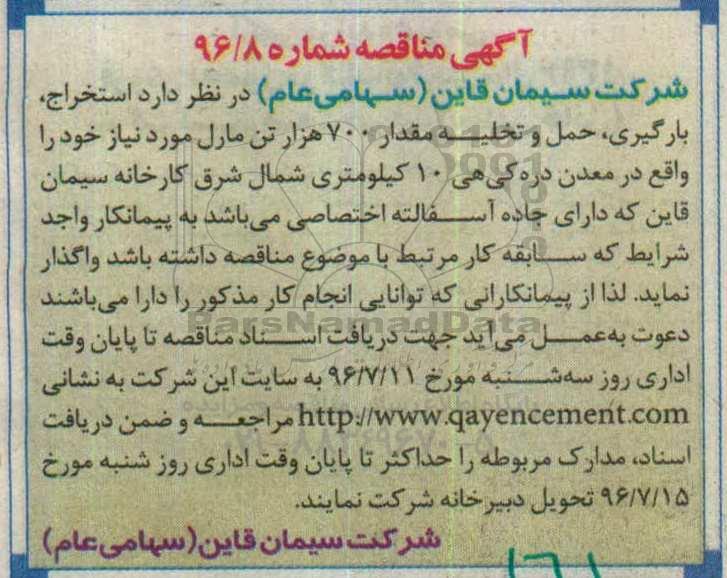 آگهی مناقصه شماره ۹۶/۸
شرکت سیمان قاین (سهامی‌عام) در نظر دارد استخراج،
بارگیری، حمل و تخلیه مقدار ۷۰۰ هزار تن مارل مورد نیاز خود را
واقع در معدن دره‌کی‌هی ۱۰ کیلومتری شمال شرق کارخانه سیمان
قاین که دارای جاده آسفالته اختصاصی می‌باشد به پیمانکار واجد
شرایط که سابقه کار مرتبط با موضوع مناقصه داشته باشد واگذار
نماید. لذا از پیمانکارانی که توانایی انجام کار مذکور را دارا می‌باشند
دعوت به‌عمل می‌آید جهت دریافت اسناد مناقصه تا پایان وقت
اداری روز سه‌شنبه مورخ ۹۶/۷/۱۱ به سایت این شرکت به نشانی
http://www.qayencement.com مراجعه و ضمن دریافت
اسناد، مدارک مربوطه را حداکثر تا پایان وقت اداری روز شنبه مورخ
۹۶/۷/۱۵ تحویل دبیرخانه شرکت نمایند.
شرکت سیمان قاین (سهامی‌عام)
ParsNamadData